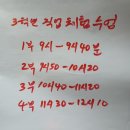 3학년 직업 체험 수업
1부 9시~9시40분
2부 9시50~10시30
3부 10시40~11시20
4부 11시30~12시10